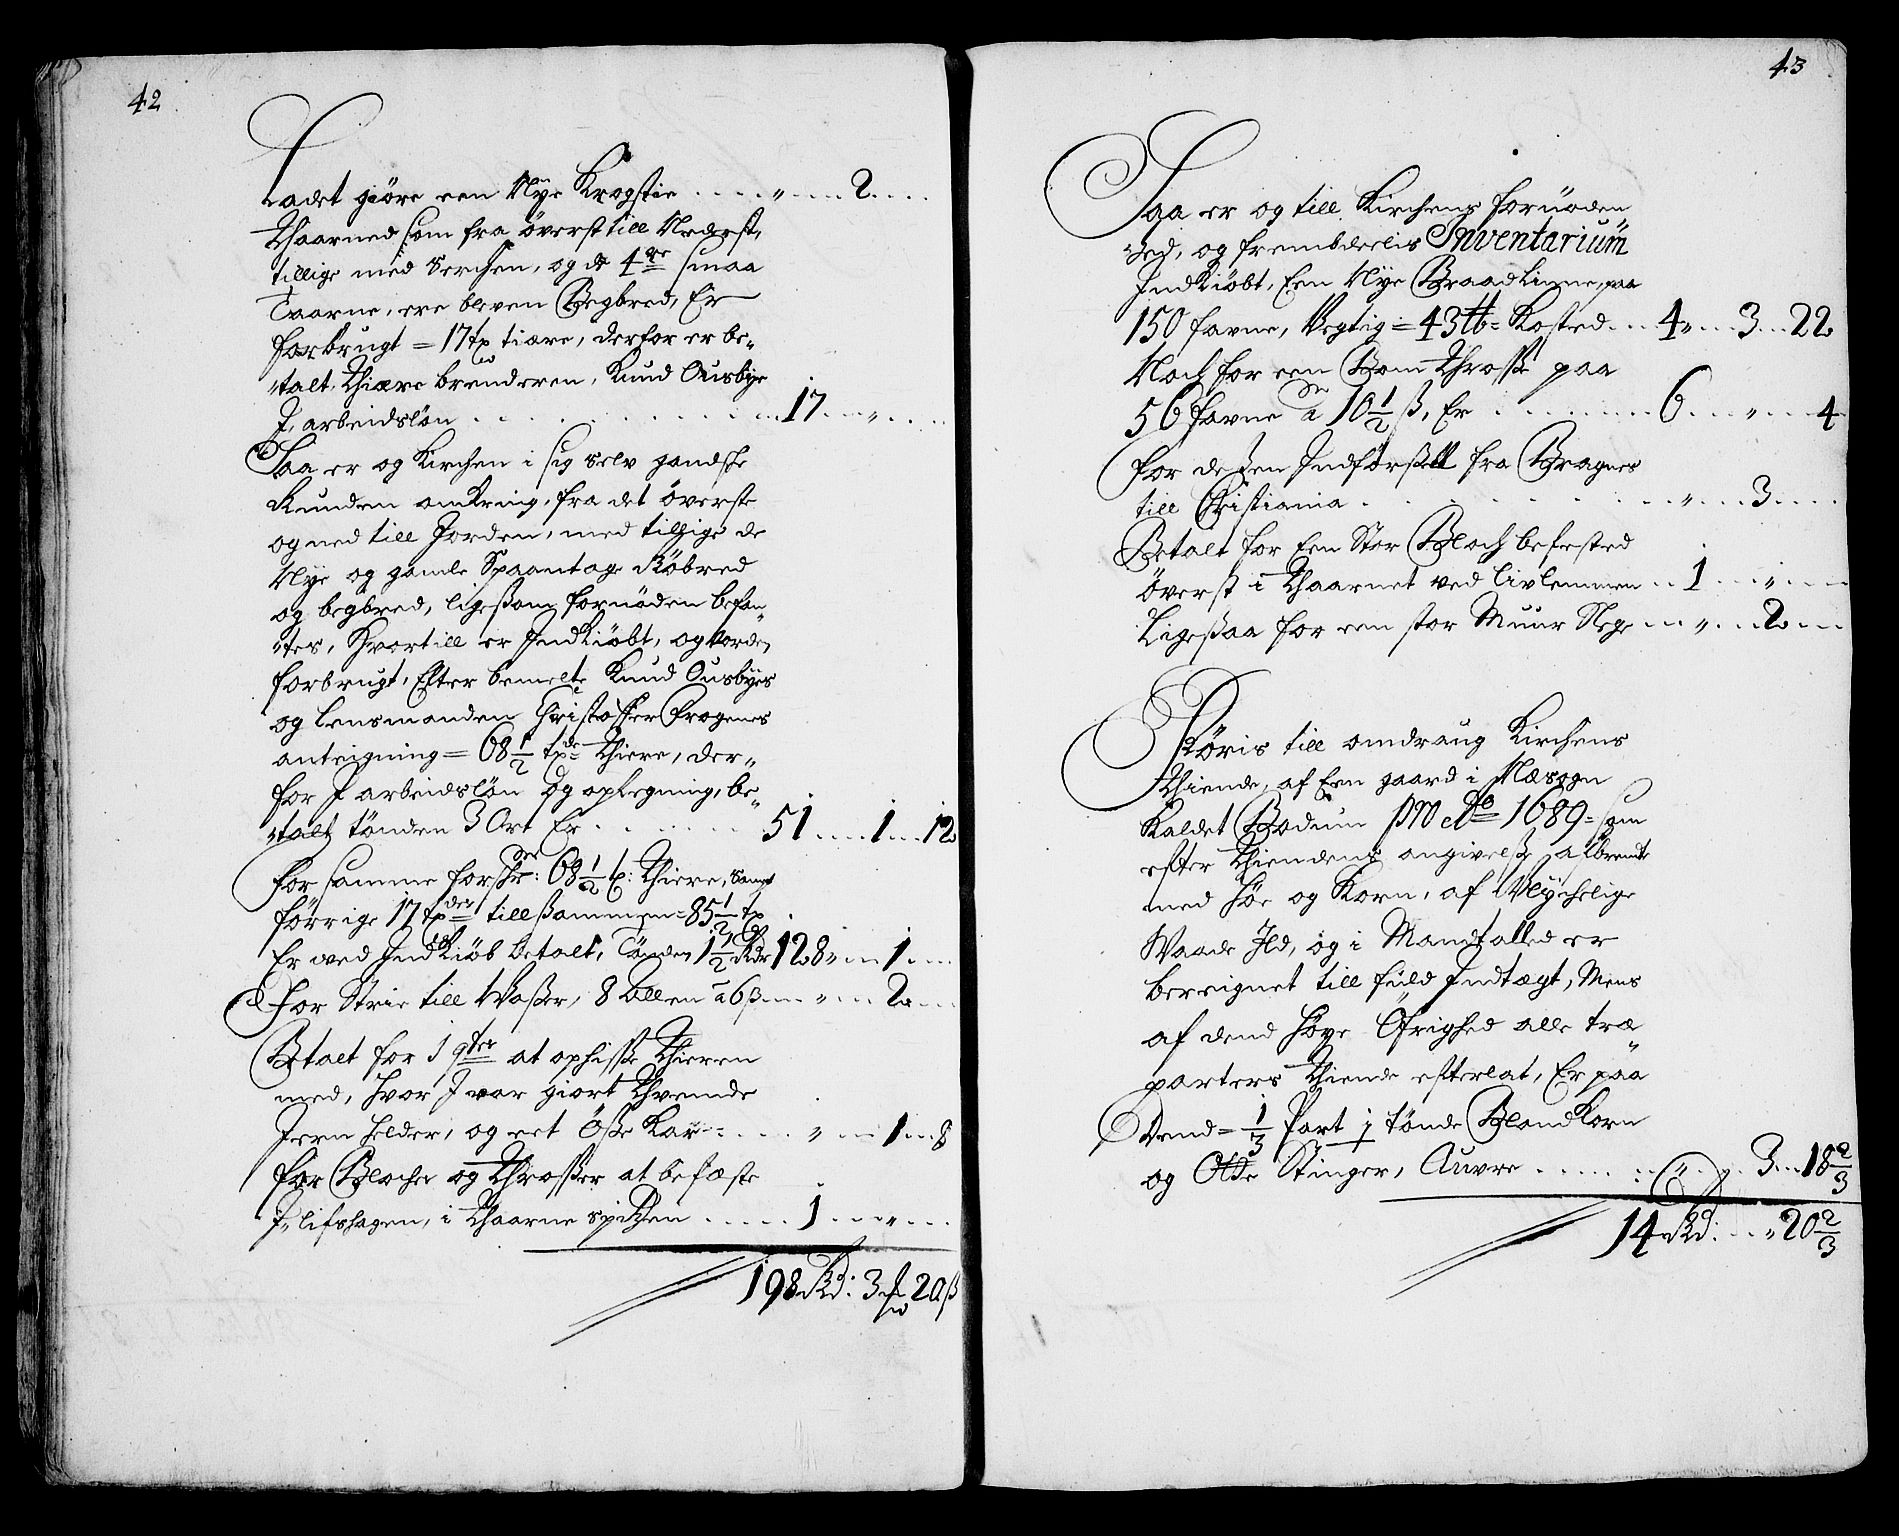 42
Ladet giöre een Nÿe Krogstie . . . . „ . . . . 2 . . . .
Thaarned som fra överst till Nederst,
tillige med Serchen, og de 4re smaa
Taarne, ere bleven Begbred, Er
forbrugt = 17 tp tiære, derfor er be„
„talt Thiære brenderen, Knud Ousbÿe
J arbeidslön . . . . . . . . . . 17 . . . „ . . . .
Saa er og Kirchen i sig selv gandsche
Runden omkring, fra det överste
og ned till Jorden, med tillige de
Nÿe og gamle Spaantage Röbred
og begbred, ligesom fornöden befan„
„tes, Hvortill er Jndkiöbt, og vorden
forbrugt, Efter bemelte Knud Ousbÿes
og lensmanden Christoffer Frogenes
anteigning = 68 1/2 tpde Thiere, der„
for J arbeidslön og oplegning, be„
„talt tönden 3 Ort Er . . . . . . 51 . . . . 1 . . . 12
for samme forschr: 68 1/2 t: Thiere, samt
forrige 17 tpder tillsammen = 85 1/2 tp
Er ved Jndkiöb betalt, Tönden 1 1/2 Rdr 128 „ . . . 1 . . .
For Strie till Vasker, 8 allen a 6 ß . . . „ . . . 2 . . .
Betalt for 1 gter at ophisse Thieren
med, hvor J var giort Thvende
Jern helder, og eet Öse Kar . . . . „ . . . 1 . . . 8
for Blocher og Throsser at befæste
J, lifshagen, i Thaarne spidtzen . . . . . 1 . . . „ . . .
198 Rd: 3 20 ß
43
Saa er og till Kirchens fornöden
hed, og frembdeelis Inventarium
Jndkiöbt, Een Nÿe Braadlinne, paa
150 favne, Vegtig = 43 ℔ = Kosted . . . 4 „ . . . 3 . . . 22
Noch for een Bom Throsse paa
56 favne a 10 1/2 ß, Er . . . . . . . 6 . . . „ . . . 4
for dessen Jndförsell fra Bragnes
till Christiania . . . . . . . . „ . . . 3 . . .
Betalt for Een Stor Bloch befested
överst i Thaarnet ved livlemmen . . 1 . . . „ . . .
Ligesaa for een stor Muur Slege . . . „ . . . 2 . . .
Köris till omdraug Kirchens
Thiende, af Een gaard i Næsogn
Kaldet Bodum pro Ao 1689 = som
efter Thiendens angivelse, afbrendte
med höe og Korn, af Ulÿchelige
Vaade Jld, og i Mandtalled er
beregnet till fuld Jndtægt, Mens
af dend höÿe Öfrighed alle træ
parters Thiende efterlat, Er paa
Dend = 1/3 Part 1 tönde Blandkorn
og Otte Stinger, Auvre . . . . . . „ . . 3 . . 18 2/3
14 Rd: . . „ 20 2/3